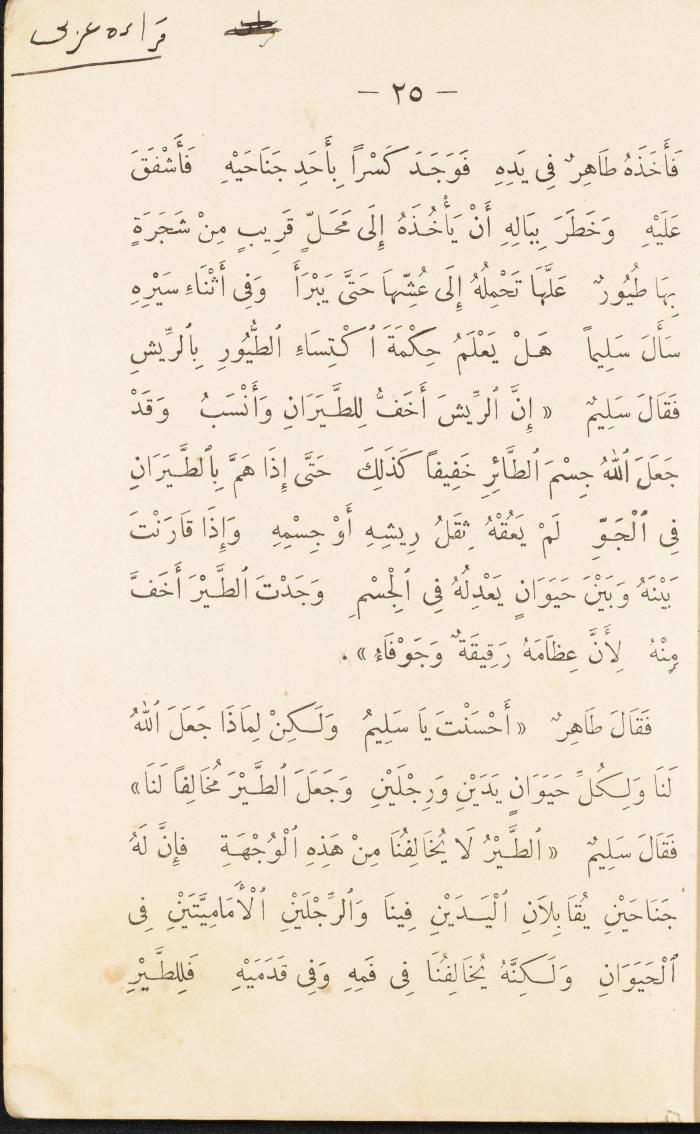 قراءه عربى
— ٢٥ —
فَأَخَذَهُ طَاهِرٌ فِى يَدِهِ فَوَجَدَ كَسْرًا بِأَحَدِ جَنَاحَيْهِ فَأَشْفَقَ
عَلَيْهِ وَخَطَرَ بِبَالِهِ أَنْ يَأْخُذَهُ إِلَى مَحَلٍّ قَرِيبٍ مِنْ شَجَرَةٍ
بِهَا طُيُورٌ عَلَّهَا تَحْمِلُهُ إِلَى عُشِّهَا حَتَّى يَبْرَأَ وَفِى أَثْنَاءِ سَيْرِهِ
سَأَلَ سَلِيماً هَلْ يَعْلَمُ حِكْمَةَ ٱكْتِسَاءِ ٱلطُّيُورِ بِٱلرِّيشِ
فَقَالَ سَلِيمٌ « إِنَّ ٱلرِّيشَ أَخَفُّ لِلطَّيَرَانِ وَأَنْسَبُ وَقَدْ
جَعَلَ ٱللهُ جِسْمَ ٱلطَّائِرِ خَفِيفاً كَذَلِكَ حَتَّى إِذَا هَمَّ بِٱلطَّيَرَانِ
فِى ٱلْجَوِّ لَمْ يَعُقْهُ ثِقَلُ رِيشِهِ أَوْ جِسْمِهِ وَإِذَا قَارَنْتَ
بَيْنَهُ وَبَيْنَ حَيَوَانٍ يَعْدِلُهُ فِى ٱلْجِسْمِ وَجَدْتَ ٱلطَّيْرَ أَخَفَّ
مِنْهُ لِأَنَّ عِظَامَهُ رَقِيقَةٌ وَجَوْفَاءُ » .
فَقَالَ طَاهِرٌ « أَحْسَنْتَ يَا سَلِيمُ وَلَكِنْ لِمَاذَا جَعَلَ ٱللهُ
لَنَا وَلِكُلِّ حَيَوَانٍ يَدَيْنِ وَرِجْلَيْنِ وَجَعَلَ ٱلطَّيْرَ مُخَالِفًا لَنَا »
فَقَالَ سَلِيمٌ « ٱلطَّيْرُ لَا يُخَالِفُنَا مِنْ هَذِهِ ٱلْوُجْهَةِ فَإِنَّ لَهُ
جَنَاحَيْنِ يُقَابِلَانِ ٱلْيَدَيْنِ فِينَا وَٱلرِّجْلَيْنِ ٱلْأَمَامِيَّتَيْنِ فِى
ٱلْحَيَوَانِ وَلَكِنَّهُ يُخَالِفُنَا فِى فَمِهِ وَفِى قَدَمَيْهِ فَلِلطَّيْرِ